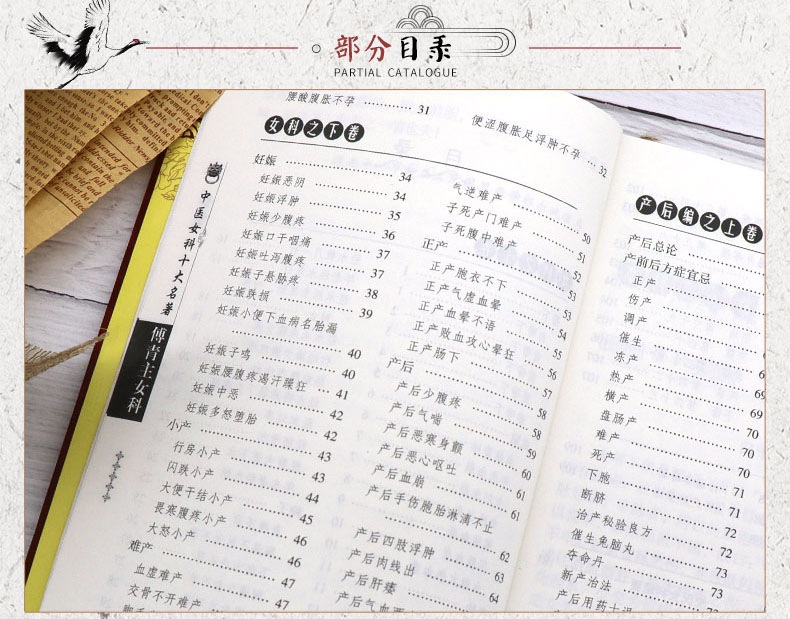 部分目录
PARTIAL CATALOGUE
中医女科十大名著
傅青主女科
腰酸腹胀不孕 …… 31
女科之下卷
妊娠 …… 34
妊娠恶阴 …… 34
妊娠浮肿 …… 35
妊娠少腹疼 …… 36
妊娠口干咽痛 …… 37
妊娠吐泻腹疼 …… 37
妊娠子悬胁疼 …… 38
妊娠跌损 …… 39
妊娠小便下血病名胎漏
…… 40
妊娠子鸣 …… 40
妊娠腰腹疼渴汗躁狂 …… 41
妊娠中恶 …… 42
妊娠多怒堕胎 …… 42
小产 …… 43
行房小产 …… 43
闪跌小产 …… 44
大便干结小产 …… 45
畏寒腹疼小产 …… 46
大怒小产 …… 46
难产 …… 47
血虚难产 …… 47
交骨不开难产
便涩腹胀足浮肿不孕 …… 32
气逆难产 …… 50
子死产门难产 …… 51
子死腹中难产 …… 52
正产 …… 53
正产胞衣不下 …… 53
正产气虚血晕 …… 54
正产血晕不语 …… 55
正产败血攻心晕狂
正产肠下
产后 …… 58
产后少腹疼 …… 58
产后气喘 …… 59
产后恶寒身颤 …… 60
产后恶心呕吐 …… 61
产后血崩 …… 61
产后手伤胞胎淋漓不止
…… 62
产后四肢浮肿 …… 63
产后肉线出 …… 64
产后肝痿
产后气血
产后编之上卷
产后总论
产前后方症宜忌
正产
伤产
调产
催生
冻产
热产 …… 69
横产 …… 69
盘肠产 …… 70
难产 …… 70
死产 …… 70
下胞 …… 71
断脐 …… 71
治产秘验良方 …… 72
催生兔脑丸 …… 72
夺命丹 …… 73
新产治法 …… 73
产后用药十误